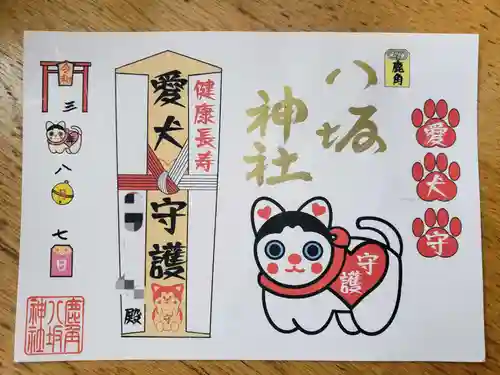 愛犬守
鹿角
八坂
神社
守護
健康長寿
愛犬守護
殿
令和
三
八
七
日
鹿角
八坂
神社